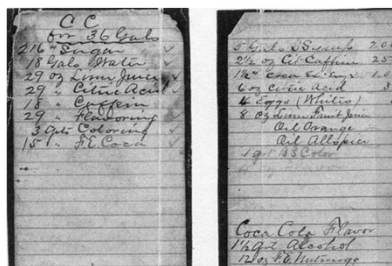 C C
for 36 Gals
216 " Sugar
18 Gals Water
29 oz Lime Juice
29 " Citric Acid
18 " Caffein
29 " Flavoring
3 qts Coloring
15 " F.E. Coca
5 Gals S Syrup
2½ oz Cit Caffein
6 oz Citric Acid
4 Eggs (Whites)
8 oz Lime Juice
Oil Orange
Oil Allspice
1 qt BS Color
Coca Cola Flavor
1½ qrt Alcohol
12 oz F.E. Nutmegs